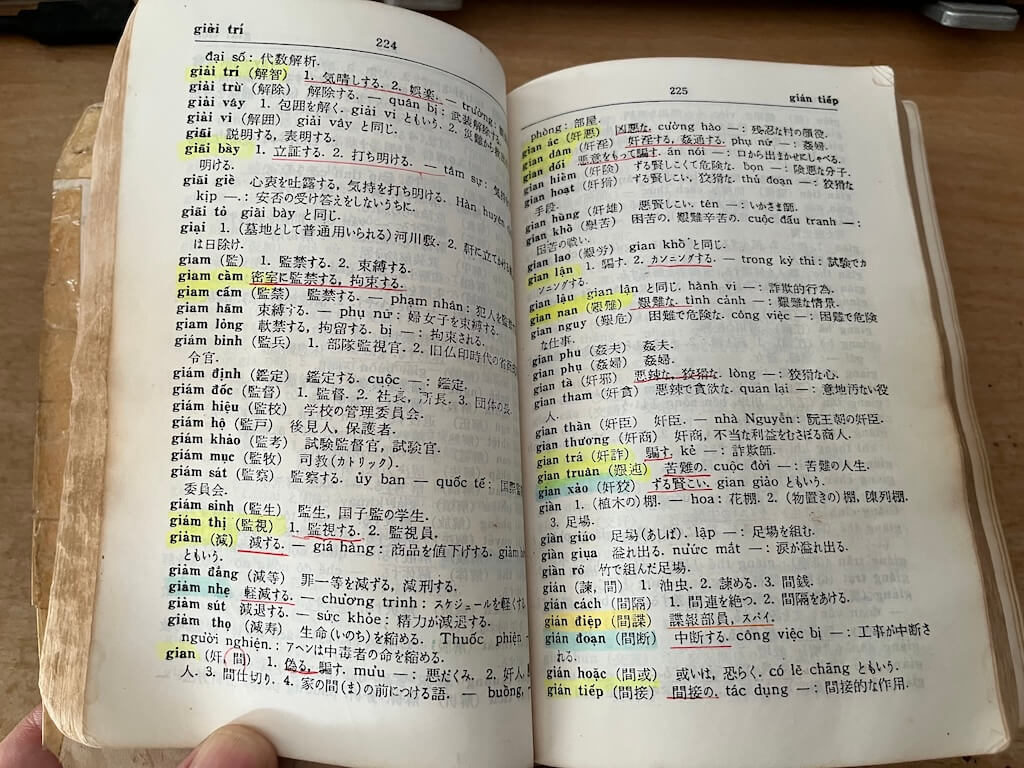 giải trí
224
đại số: 代数解析.
giải trí (解智) 1. 気晴しする. 2. 娯楽. — trường:
giải trừ (解除) 解除する. — quân bị: 武装解除する.
giải vây 1. 包囲を解く. giải vi ともいう. 2. 災難から
giải vi (解囲) giải vây と同じ.
giãi 説明する, 表明する.
giãi bày 1. 立証する. 2. 打ち明ける. — tâm sự: 気持
明ける.
giãi giề 心衷を吐露する, 気持を打ち明ける. Hàn huyên
kịp —.: 安否の受け答えをしないうちに.
giãi tỏ giãi bày と同じ.
giại 1. (墓地として普通用いられる) 河川敷. 2. 軒に立て
は日除け.
giam (監) 1. 監禁する. 2. 束縛する.
giam cầm 密室に監禁する, 拘束する.
giam cấm (監禁) 監禁する. — phạm nhân: 犯人を監禁
giam hãm 束縛する. — phụ nữ: 婦女子を束縛する.
giam lỏng 軟禁する, 拘留する. bị —: 拘束される.
giám binh (監兵) 1. 部隊監視官. 2. 旧仏印時代の省
令官.
giám định (鑑定) 鑑定する. cuộc —: 鑑定.
giám đốc (監督) 1. 監督. 2. 社長, 所長. 3. 団体の長.
giám hiệu (監校) 学校の管理委員会.
giám hộ (監戸) 後見人, 保護者.
giám khảo (監考) 試験監督官, 試験官.
giám mục (監牧) 司教(カトリック).
giám sát (監察) 監察する. ủy ban — quốc tế: 国際監
委員会.
giám sinh (監生) 監生, 国子監の学生.
giám thị (監視) 1. 監視する. 2. 監視員.
giảm (減) 減ずる. — giá hàng: 商品を値下げする. giảm
ともいう.
giảm đẳng (減等) 罪一等を減ずる, 減刑する.
giảm nhẹ 軽減する. — chương trình: スケジュールを軽くす
giảm sút 減退する. — sức khỏe: 精力が減退する.
giảm thọ (減寿) 生命(いのち)を縮める. Thuốc phiện
người nghiện.: アヘンは中毒者の命を縮める.
gian (奸, 間) 1. 偽る, 騙す. mưu —: 悪だくみ. 2. 奸人
人. 3. 間仕切り. 4. 家の間(ま)の前につける語. — buồng,
225
gián tiếp
phòng: 部屋.
gian ác (奸悪) 凶悪な. cường hào —: 残忍な村の顔役.
gian dâm (奸淫) 奸淫する, 姦通する. phụ nữ —: 姦婦.
gian dối 悪意をもって騙す. ăn nói —: 口から出まかせにしゃべる.
gian hiểm (奸険) ずる賢しこくて危険な. bọn —: 険悪な分子.
gian hoạt (奸猾) ずる賢しこい, 狡猾な. thủ đoạn —: 狡猾な
手段.
gian hùng (奸雄) 悪賢しい. tên —: いかさま師.
gian khổ (艱苦) 困苦の. 艱難辛苦の. cuộc đấu tranh —:
困苦の戦い.
gian lao (艱労) gian khổ と同じ.
gian lận 1. 騙す. 2. カンニングする. — trong kỳ thi: 試験でカ
ンニングする.
gian lậu gian lận と同じ. hành vi —: 詐欺的行為.
gian nan (艱難) 艱難な. tình cảnh —: 艱難な情景.
gian nguy (艱危) 困難で危険な. công việc —: 困難で危険
な仕事.
gian phu (姦夫) 姦夫.
gian phụ (姦婦) 姦婦.
gian tà (奸邪) 悪辣な, 狡猾な. lòng —: 狡猾な心.
gian tham (奸貪) 悪辣で貪欲な. quan lại —: 意地汚ない役
人.
gian thần (奸臣) 奸臣. — nhà Nguyễn: 阮王朝の奸臣.
gian thương (奸商) 奸商, 不当な利益をむさぼる商人.
gian trá (奸詐) 騙す. kẻ —: 詐欺師.
gian truân (艱迍) 苦難の. cuộc đời —: 苦難の人生.
gian xảo (奸狡) ずる賢こい. gian giảo ともいう.
giàn 1. (植木の) 棚. — hoa: 花棚. 2. (物置きの) 棚, 陳列棚.
3. 足場.
giàn giáo 足場(あしば). lập —: 足場を組む.
giàn giụa 溢れ出る. nước mắt —: 涙が溢れ出る.
giàn rớ 竹で組んだ足場.
gián (諫, 間) 1. 油虫. 2. 諫める. 3. 間銭.
gián cách (間隔) 1. 間連を絶つ. 2. 間隔をあける.
gián điệp (間諜) 諜報部員, スパイ.
gián đoạn (間断) 中断する. công việc bị —: 工事が中断さ
れる.
gián hoặc (間或) 或いは, 恐らく. có lẽ chăng ともいう.
gián tiếp (間接) 間接の. tác dụng —: 間接的な作用.